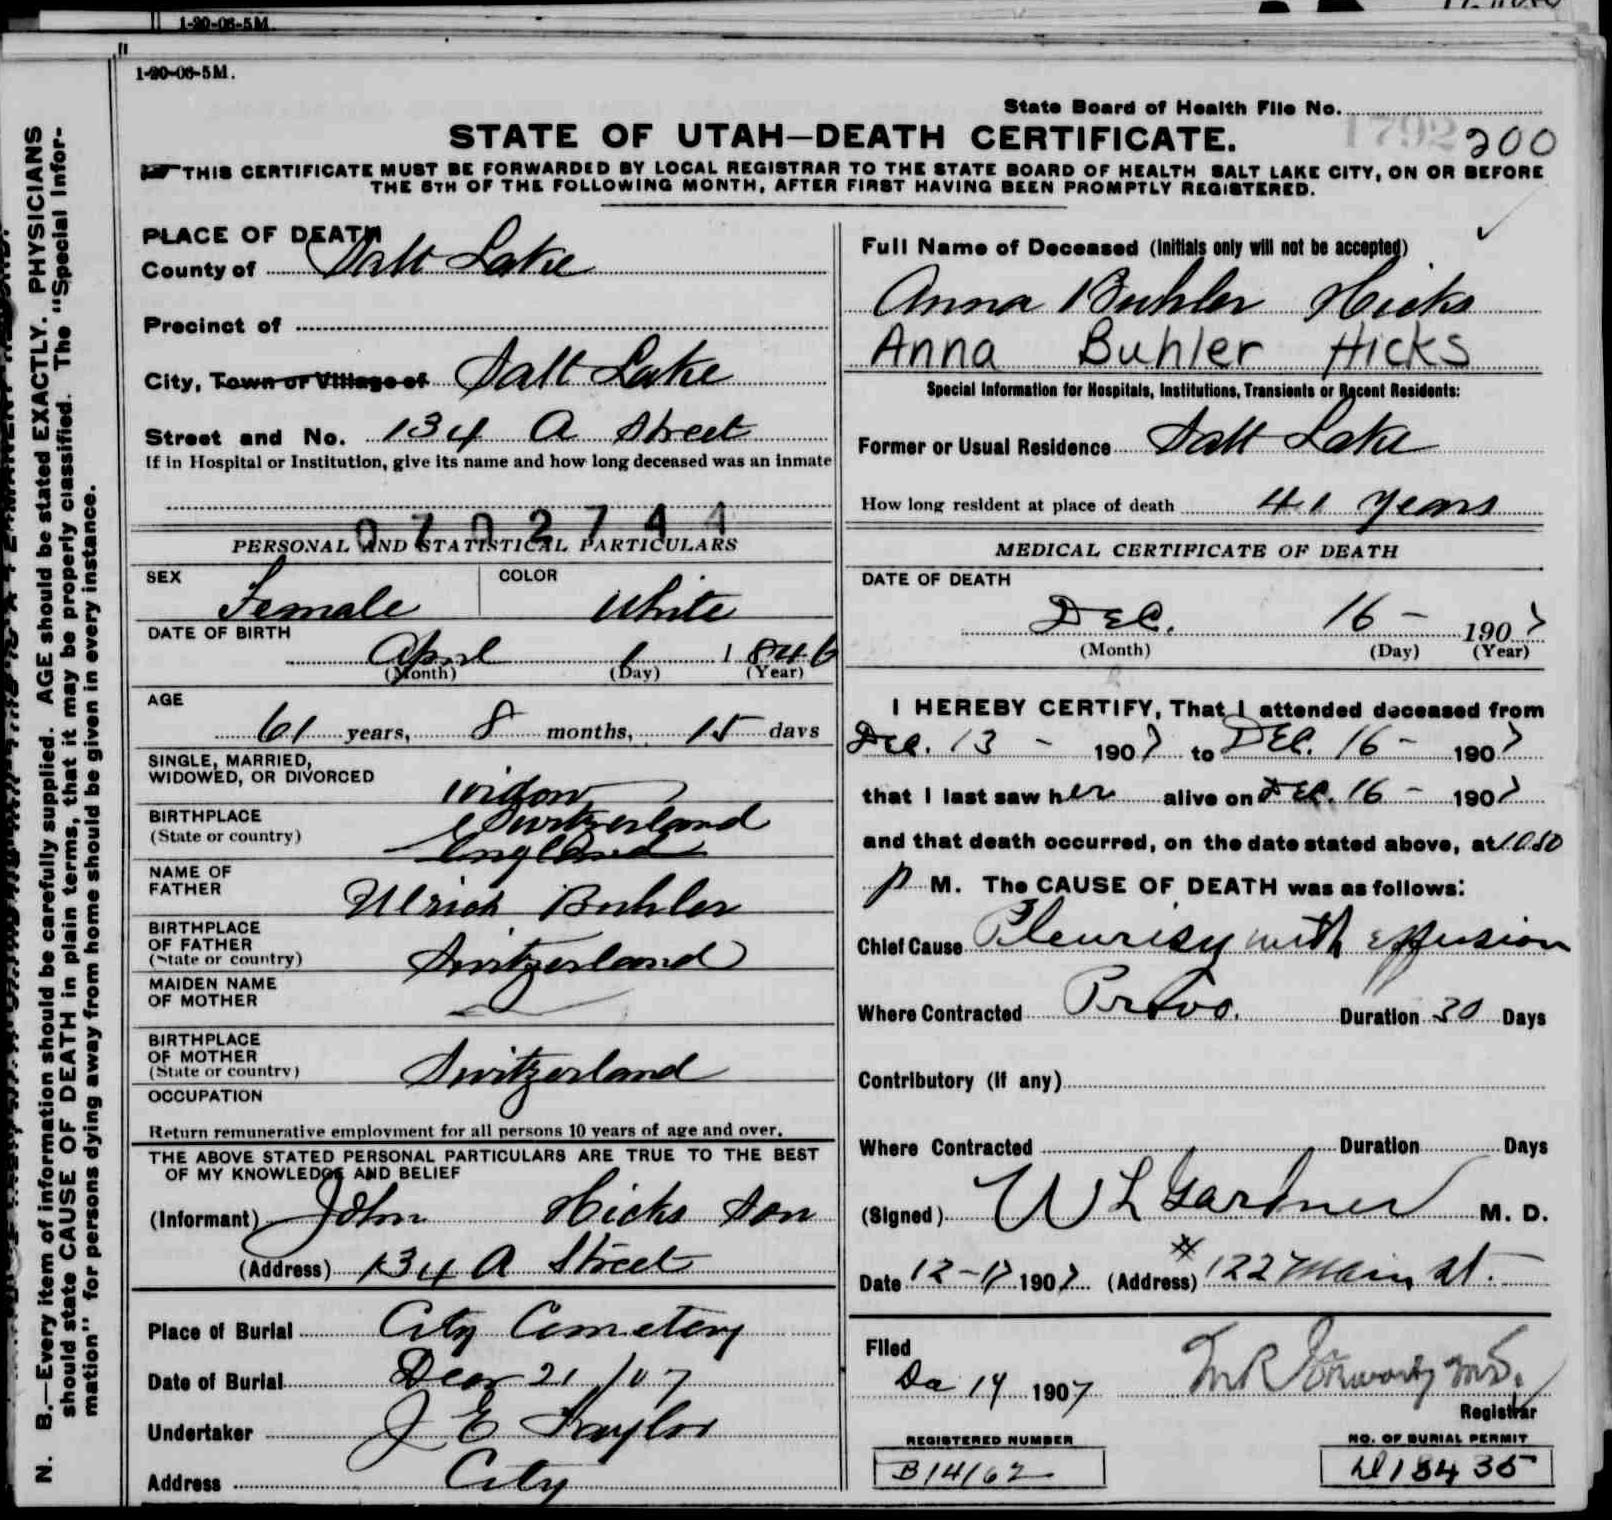 1-20-06-5M.
1-20-06-5M.
State Board of Health File No.
1792 200
STATE OF UTAH—DEATH CERTIFICATE.
THIS CERTIFICATE MUST BE FORWARDED BY LOCAL REGISTRAR TO THE STATE BOARD OF HEALTH SALT LAKE CITY, ON OR BEFORE
THE 5TH OF THE FOLLOWING MONTH, AFTER FIRST HAVING BEEN PROMPTLY REGISTERED.
N. B.—Every item of information should be carefully supplied. AGE should be stated EXACTLY. PHYSICIANS
should state CAUSE OF DEATH in plain terms, that it may be properly classified. The "Special Infor-
mation" for persons dying away from home should be given in every instance.
PLACE OF DEATH
County of Salt Lake
Precinct of
City, Town or Village of Salt Lake
Street and No. 134 A Street
If in Hospital or Institution, give its name and how long deceased was an inmate
0702744
PERSONAL AND STATISTICAL PARTICULARS
SEX Female COLOR White
DATE OF BIRTH
April 1 1846
(Month) (Day) (Year)
AGE
61 years, 8 months, 15 days
SINGLE, MARRIED,
WIDOWED, OR DIVORCED widow
BIRTHPLACE Switzerland
(State or country) England
NAME OF
FATHER Ulrich Buhler
BIRTHPLACE
OF FATHER Switzerland
(State or country)
MAIDEN NAME
OF MOTHER
BIRTHPLACE
OF MOTHER Switzerland
(State or country)
OCCUPATION
Return remunerative employment for all persons 10 years of age and over.
THE ABOVE STATED PERSONAL PARTICULARS ARE TRUE TO THE BEST
OF MY KNOWLEDGE AND BELIEF
(Informant) John Hicks Son
(Address) 134 A Street
Place of Burial City Cemetery
Date of Burial Dec 21 /07
Undertaker J E Taylor
Address City
Full Name of Deceased (Initials only will not be accepted)
Anna Buhler Hicks
Anna Buhler Hicks
Special Information for Hospitals, Institutions, Transients or Recent Residents:
Former or Usual Residence Salt Lake
How long resident at place of death 41 years
MEDICAL CERTIFICATE OF DEATH
DATE OF DEATH
Dec. 16 - 1907
(Month) (Day) (Year)
I HEREBY CERTIFY, That I attended deceased from
Dec. 13 - 1907 to Dec. 16 - 1907
that I last saw her alive on Dec. 16 - 1907
and that death occurred, on the date stated above, at
p M. The CAUSE OF DEATH was as follows:
Chief Cause Pleurisy with effusion
Where Contracted Provo. Duration 30 Days
Contributory (if any)
Where Contracted Duration Days
(Signed) W L Gardner M. D.
Date 12-17 1907 (Address) # 122 Main St.
Filed
1907
Registrar
REGISTERED NUMBER
B14162
NO. OF BURIAL PERMIT
D18435